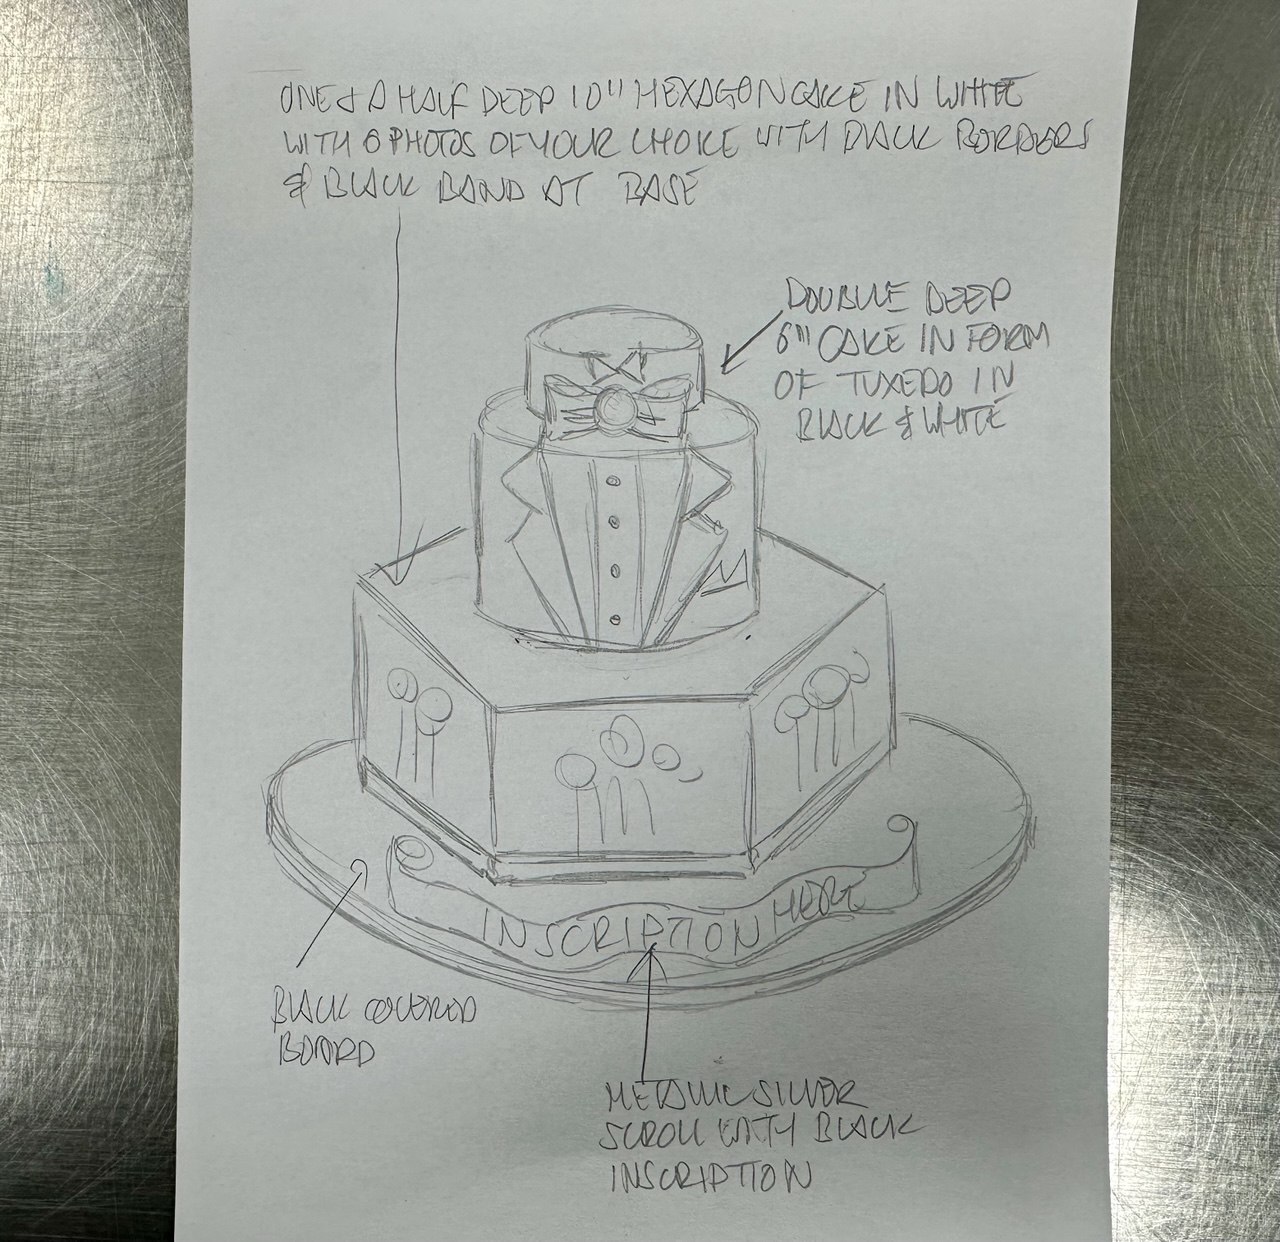 ONE & A HALF DEEP 10" HEXAGON CAKE IN WHITE
WITH 6 PHOTOS OF YOUR CHOICE WITH BLACK BORDERS
& BLACK BAND AT BASE
DOUBLE DEEP
6" CAKE IN FORM
OF TUXEDO IN
BLACK & WHITE
INSCRIPTION HERE
BLACK COVERED
BOARD
METALLIC SILVER
SCROLL WITH BLACK
INSCRIPTION